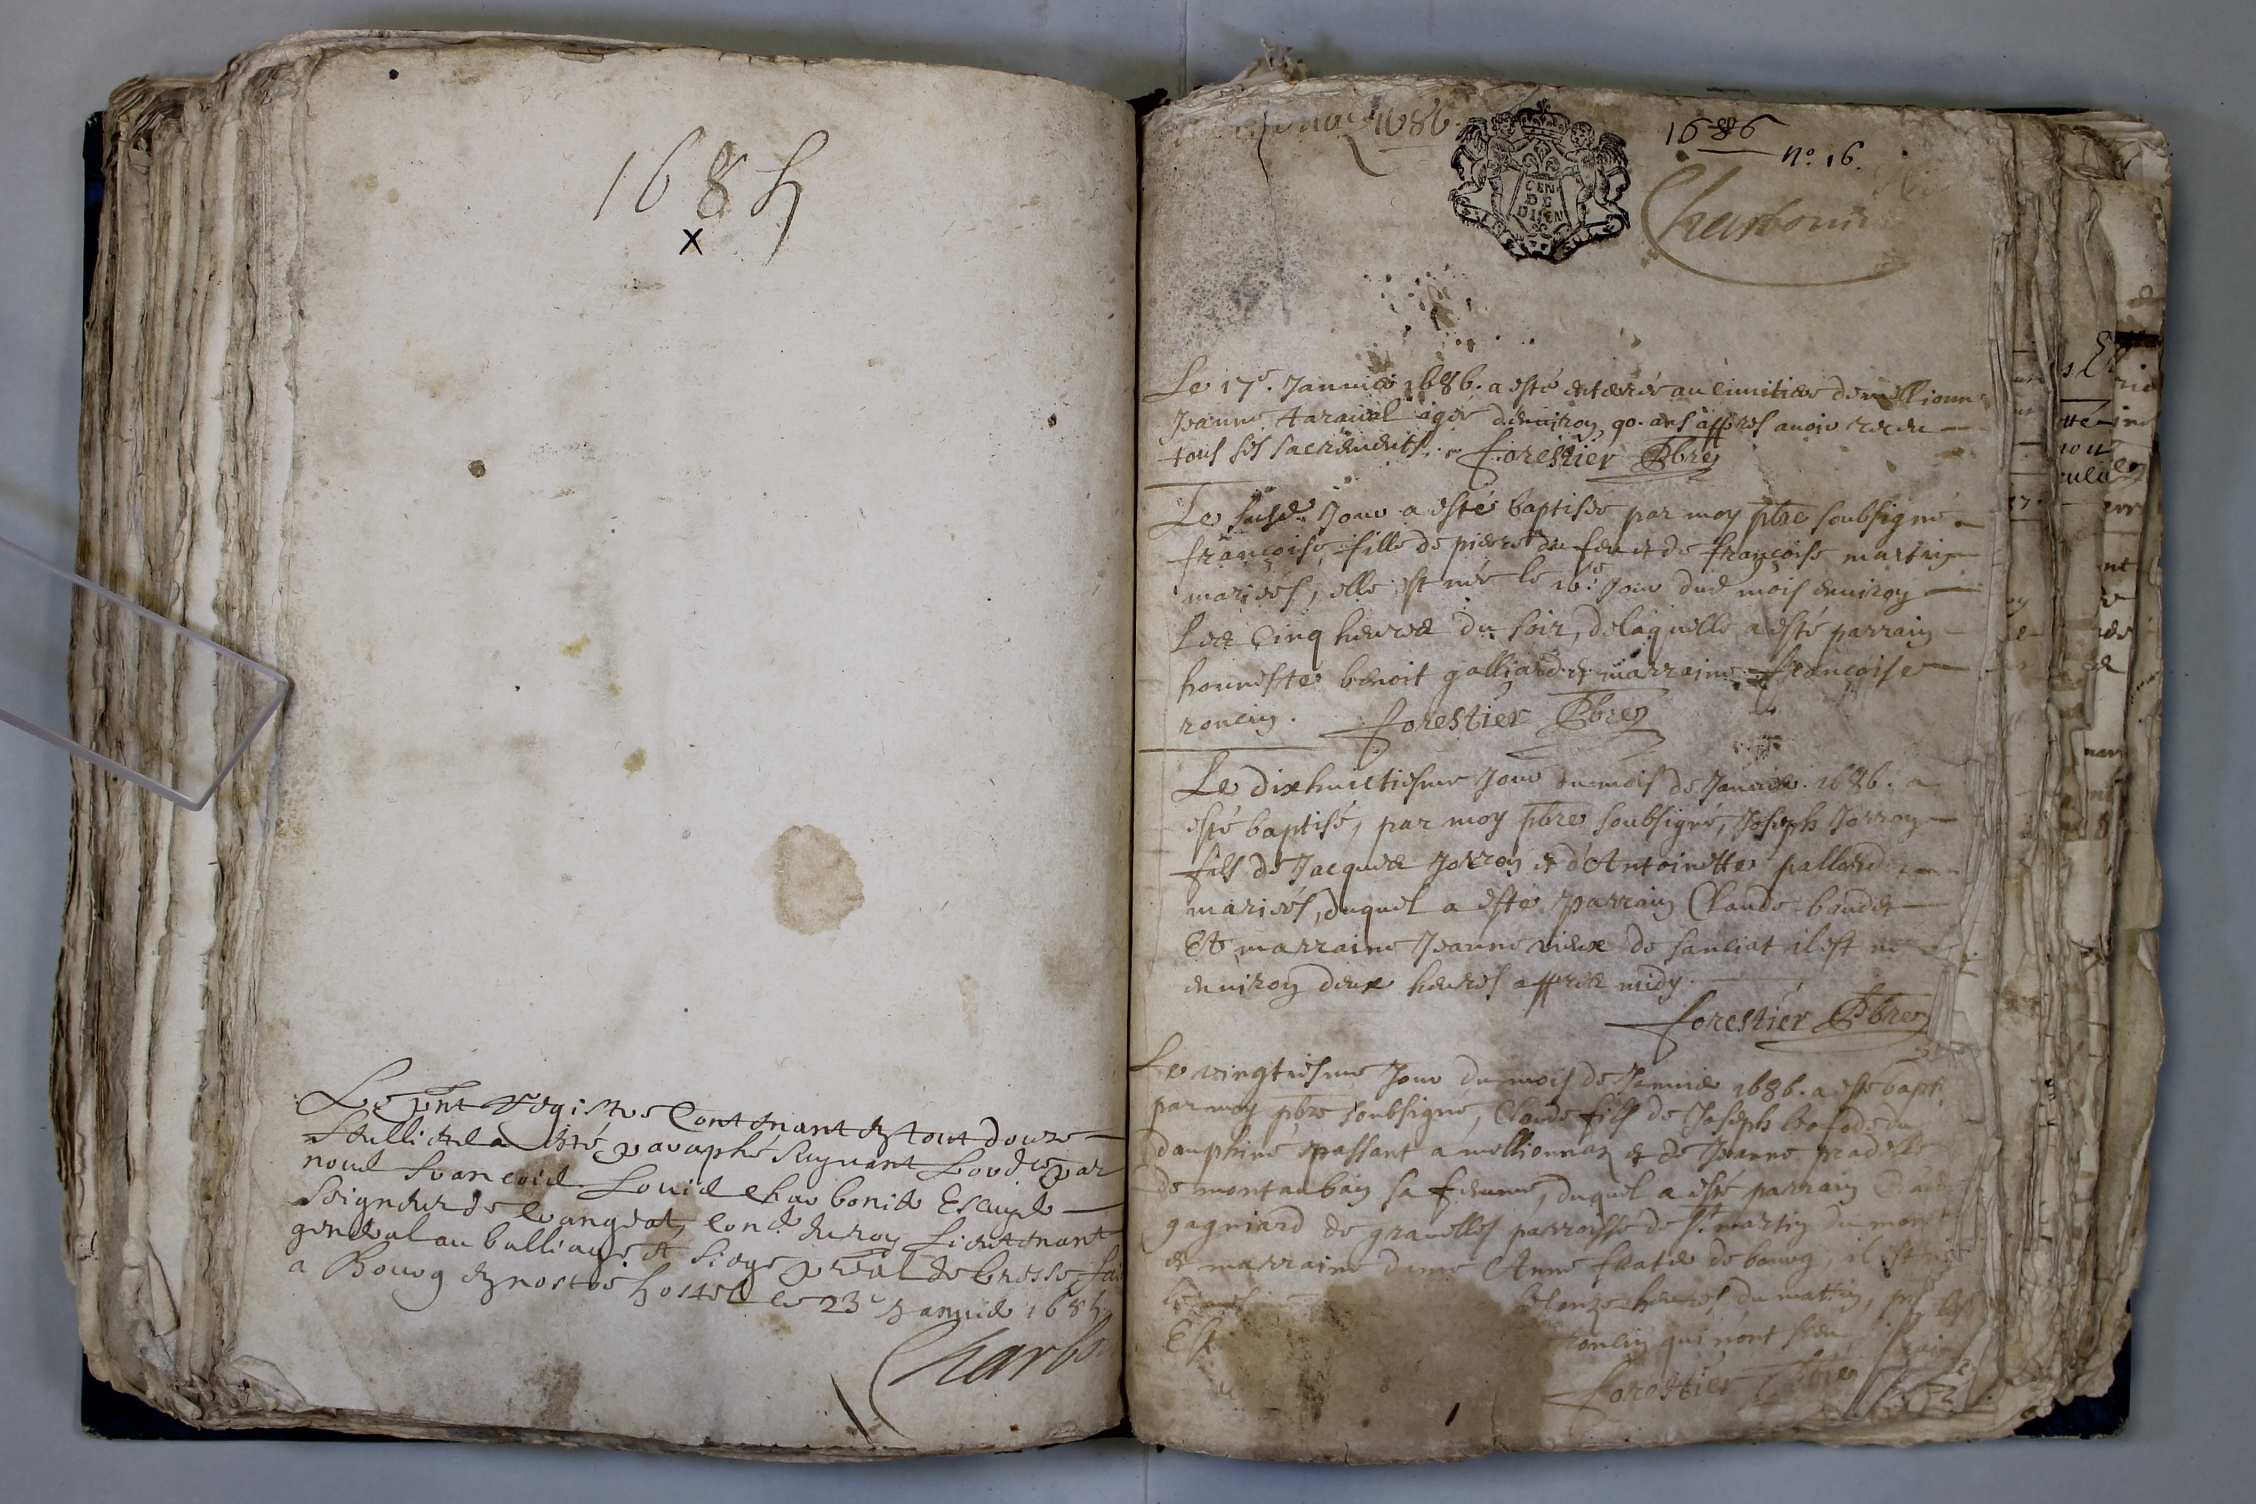 168h
x
Le pnt Registre Contenant en tout douze
feulliets a esté paraphé suyvant Lordre par
nous François Louis charbonier Escuyer
Seigneur de crangeat, conser du roy Lieutenant
general au balliage et siege preal de bresse, fai
a Bourg en nostre hostel le 23e Janvier 168h
Charb
1686.
1686
no. 16.
GEN
DE
DIJON
Charbonier
Le 17e. Janvier 1686. a esté enterré au cimitiere de mellionna
Jeanne taravel agée denviron 90. ans appres avoir receu
tous ses sacrements. forestier Pbre
Le susd. Jour a esté baptisée par moy pbre soubsigné
françoise fille de pierre du feu et de françoise martin
mariés, elle est née le 16e. Jour dud mois environ
Les Cinq heures du soir, de laquelle a esté parrain
honneste benoit galliard et marraine françoise
roncin. forestier Pbre
Le dixhuictiesme Jour du mois de Janvier. 1686. a
esté baptisé, par moy pbre soubsigné, Joseph Jorron
fils de Jacques Jorron et d'Antoinette pallord
mariés, duquel a esté parrain Claude baudet
Et marraine Jeanne vieux de sanciat il est né
environ deux heures appres midy.
forestier Pbre
Le vingtiesme Jour du mois de Janvier 1686. a esté bapt.
par moy pbre soubsigné, Claude fils de Joseph
dauphiné passant a mellionnaz et de Jeanne pradelle
de montauban sa femme, duquel a esté parrain
gagniard de gravelles parroisse de St. martin du mont
et marraine dame Anne de bourg, il est né
onze heures du mattin,
qui n'ont sceu
forestier Pbre